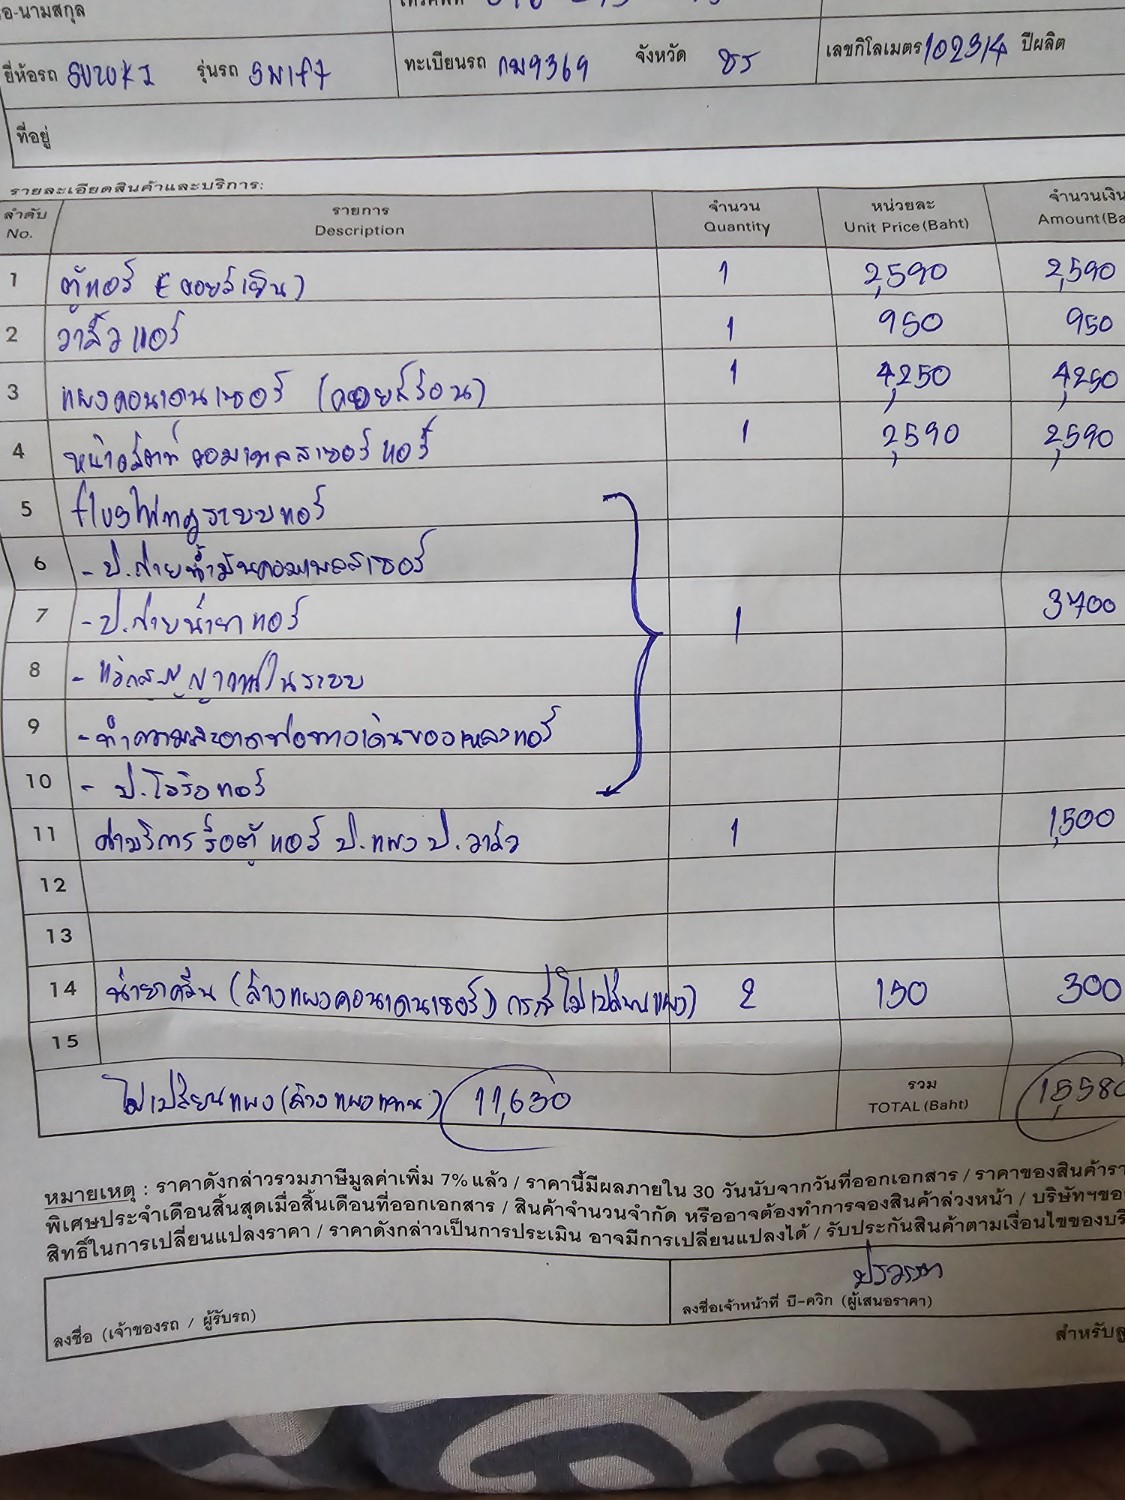 อ-นามสกุล
ยี่ห้อรถ SUZUKI รุ่นรถ SWIFT ทะเบียนรถ กม9369 จังหวัด ชร เลขกิโลเมตร 102314 ปีผลิต
ที่อยู่
รายละเอียดสินค้าและบริการ:
ลำดับ รายการ จำนวน หน่วยละ จำนวนเงิน
No. Description Quantity Unit Price(Baht) Amount(Ba
1 ตู้แอร์ (คอยล์เย็น) 1 2,590 2,590
2 วาล์วแอร์ 1 950 950
3 แผงคอนเดนเซอร์ (คอยล์ร้อน) 1 4,250 4,250
4 หน้าคลัทช์คอมเพลสเซอร์แอร์ 1 2,590 2,590
5 ระบบแอร์
6 - ป.ถ่ายน้ำมันคอมเพลสเซอร์
7 - ป.ถ่ายน้ำยาแอร์ 1 3700
8 - แว็กสูญญากาศในระบบ
9 - ทำความสะอาดท่อทางเดินของเหลวแอร์
10 - ป.โอริงแอร์
11 ค่าบริการรื้อตู้แอร์ ป.แผง ป.วาล์ว 1 1,500
12
13
14 น้ำยาครีน (ล้างแผงคอนเดนเซอร์) กรณีไม่เปลี่ยนแผง) 2 150 300
15
ไม่เปลี่ยนแผง (ล้างแผงแทน) 11,630 รวม 15,580
TOTAL (Baht)
หมายเหตุ : ราคาดังกล่าวรวมภาษีมูลค่าเพิ่ม 7% แล้ว / ราคานี้มีผลภายใน 30 วันนับจากวันที่ออกเอกสาร / ราคาของสินค้ารา
พิเศษประจำเดือนสิ้นสุดเมื่อสิ้นเดือนที่ออกเอกสาร / สินค้าจำนวนจำกัด หรืออาจต้องทำการจองสินค้าล่วงหน้า / บริษัทฯขอ
สิทธิ์ในการเปลี่ยนแปลงราคา / ราคาดังกล่าวเป็นการประเมิน อาจมีการเปลี่ยนแปลงได้ / รับประกันสินค้าตามเงื่อนไขของบริ
ลงชื่อ (เจ้าของรถ / ผู้รับรถ) ลงชื่อเจ้าหน้าที่ บี-ควิก (ผู้เสนอราคา)
สำหรับลู